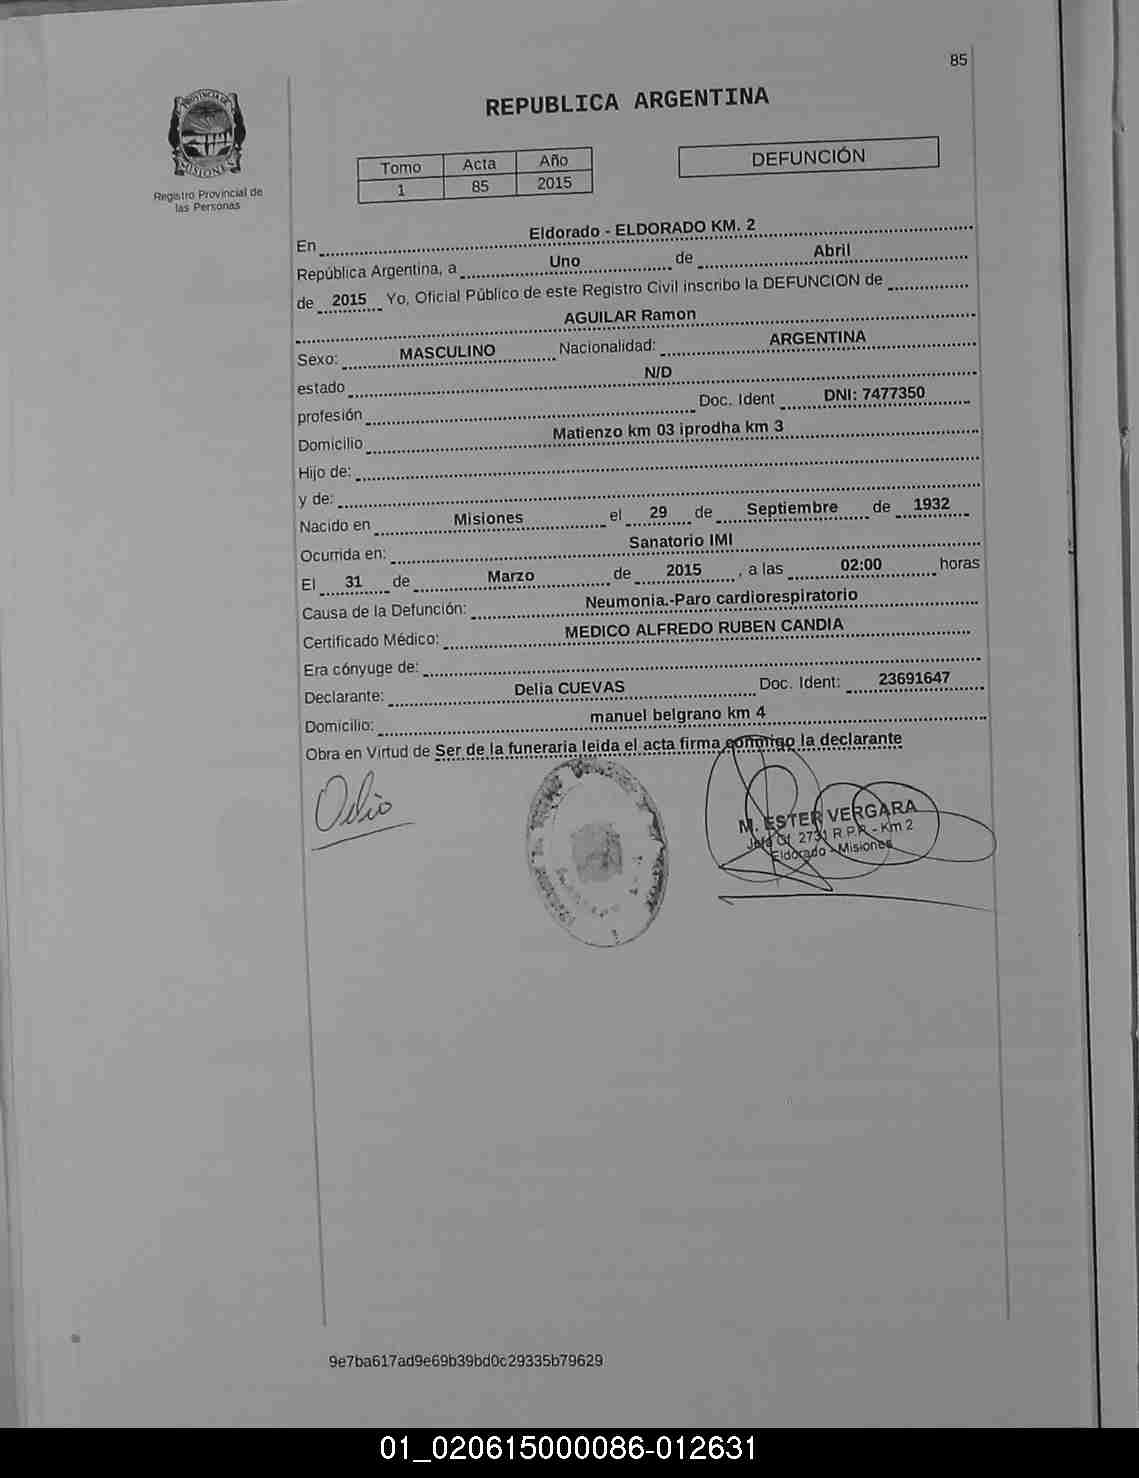 85
PROVINCIA DE
MISIONES
Registro Provincial de
las Personas
REPUBLICA ARGENTINA
Tomo Acta Año
1 85 2015
DEFUNCIÓN
En Eldorado - ELDORADO KM. 2
República Argentina, a Uno de Abril
de 2015 Yo, Oficial Público de este Registro Civil inscribo la DEFUNCION de
AGUILAR Ramon
Sexo: MASCULINO Nacionalidad: ARGENTINA
estado N/D
profesión Doc. Ident DNI: 7477350
Domicilio Matienzo km 03 iprodha km 3
Hijo de:
y de:
Nacido en Misiones el 29 de Septiembre de 1932
Ocurrida en: Sanatorio IMI
El 31 de Marzo de 2015, a las 02:00 horas
Causa de la Defunción: Neumonia.-Paro cardiorespiratorio
Certificado Médico: MEDICO ALFREDO RUBEN CANDIA
Era cónyuge de:
Declarante: Delia CUEVAS Doc. Ident: 23691647
Domicilio: manuel belgrano km 4
Obra en Virtud de Ser de la funeraria leida el acta firma conmigo la declarante
M. ESTER VERGARA
Jefa Of. 2731 R.P.P. - Km 2
Eldorado - Misiones
9e7ba617ad9e69b39bd0c29335b79629
01_020615000086-012631